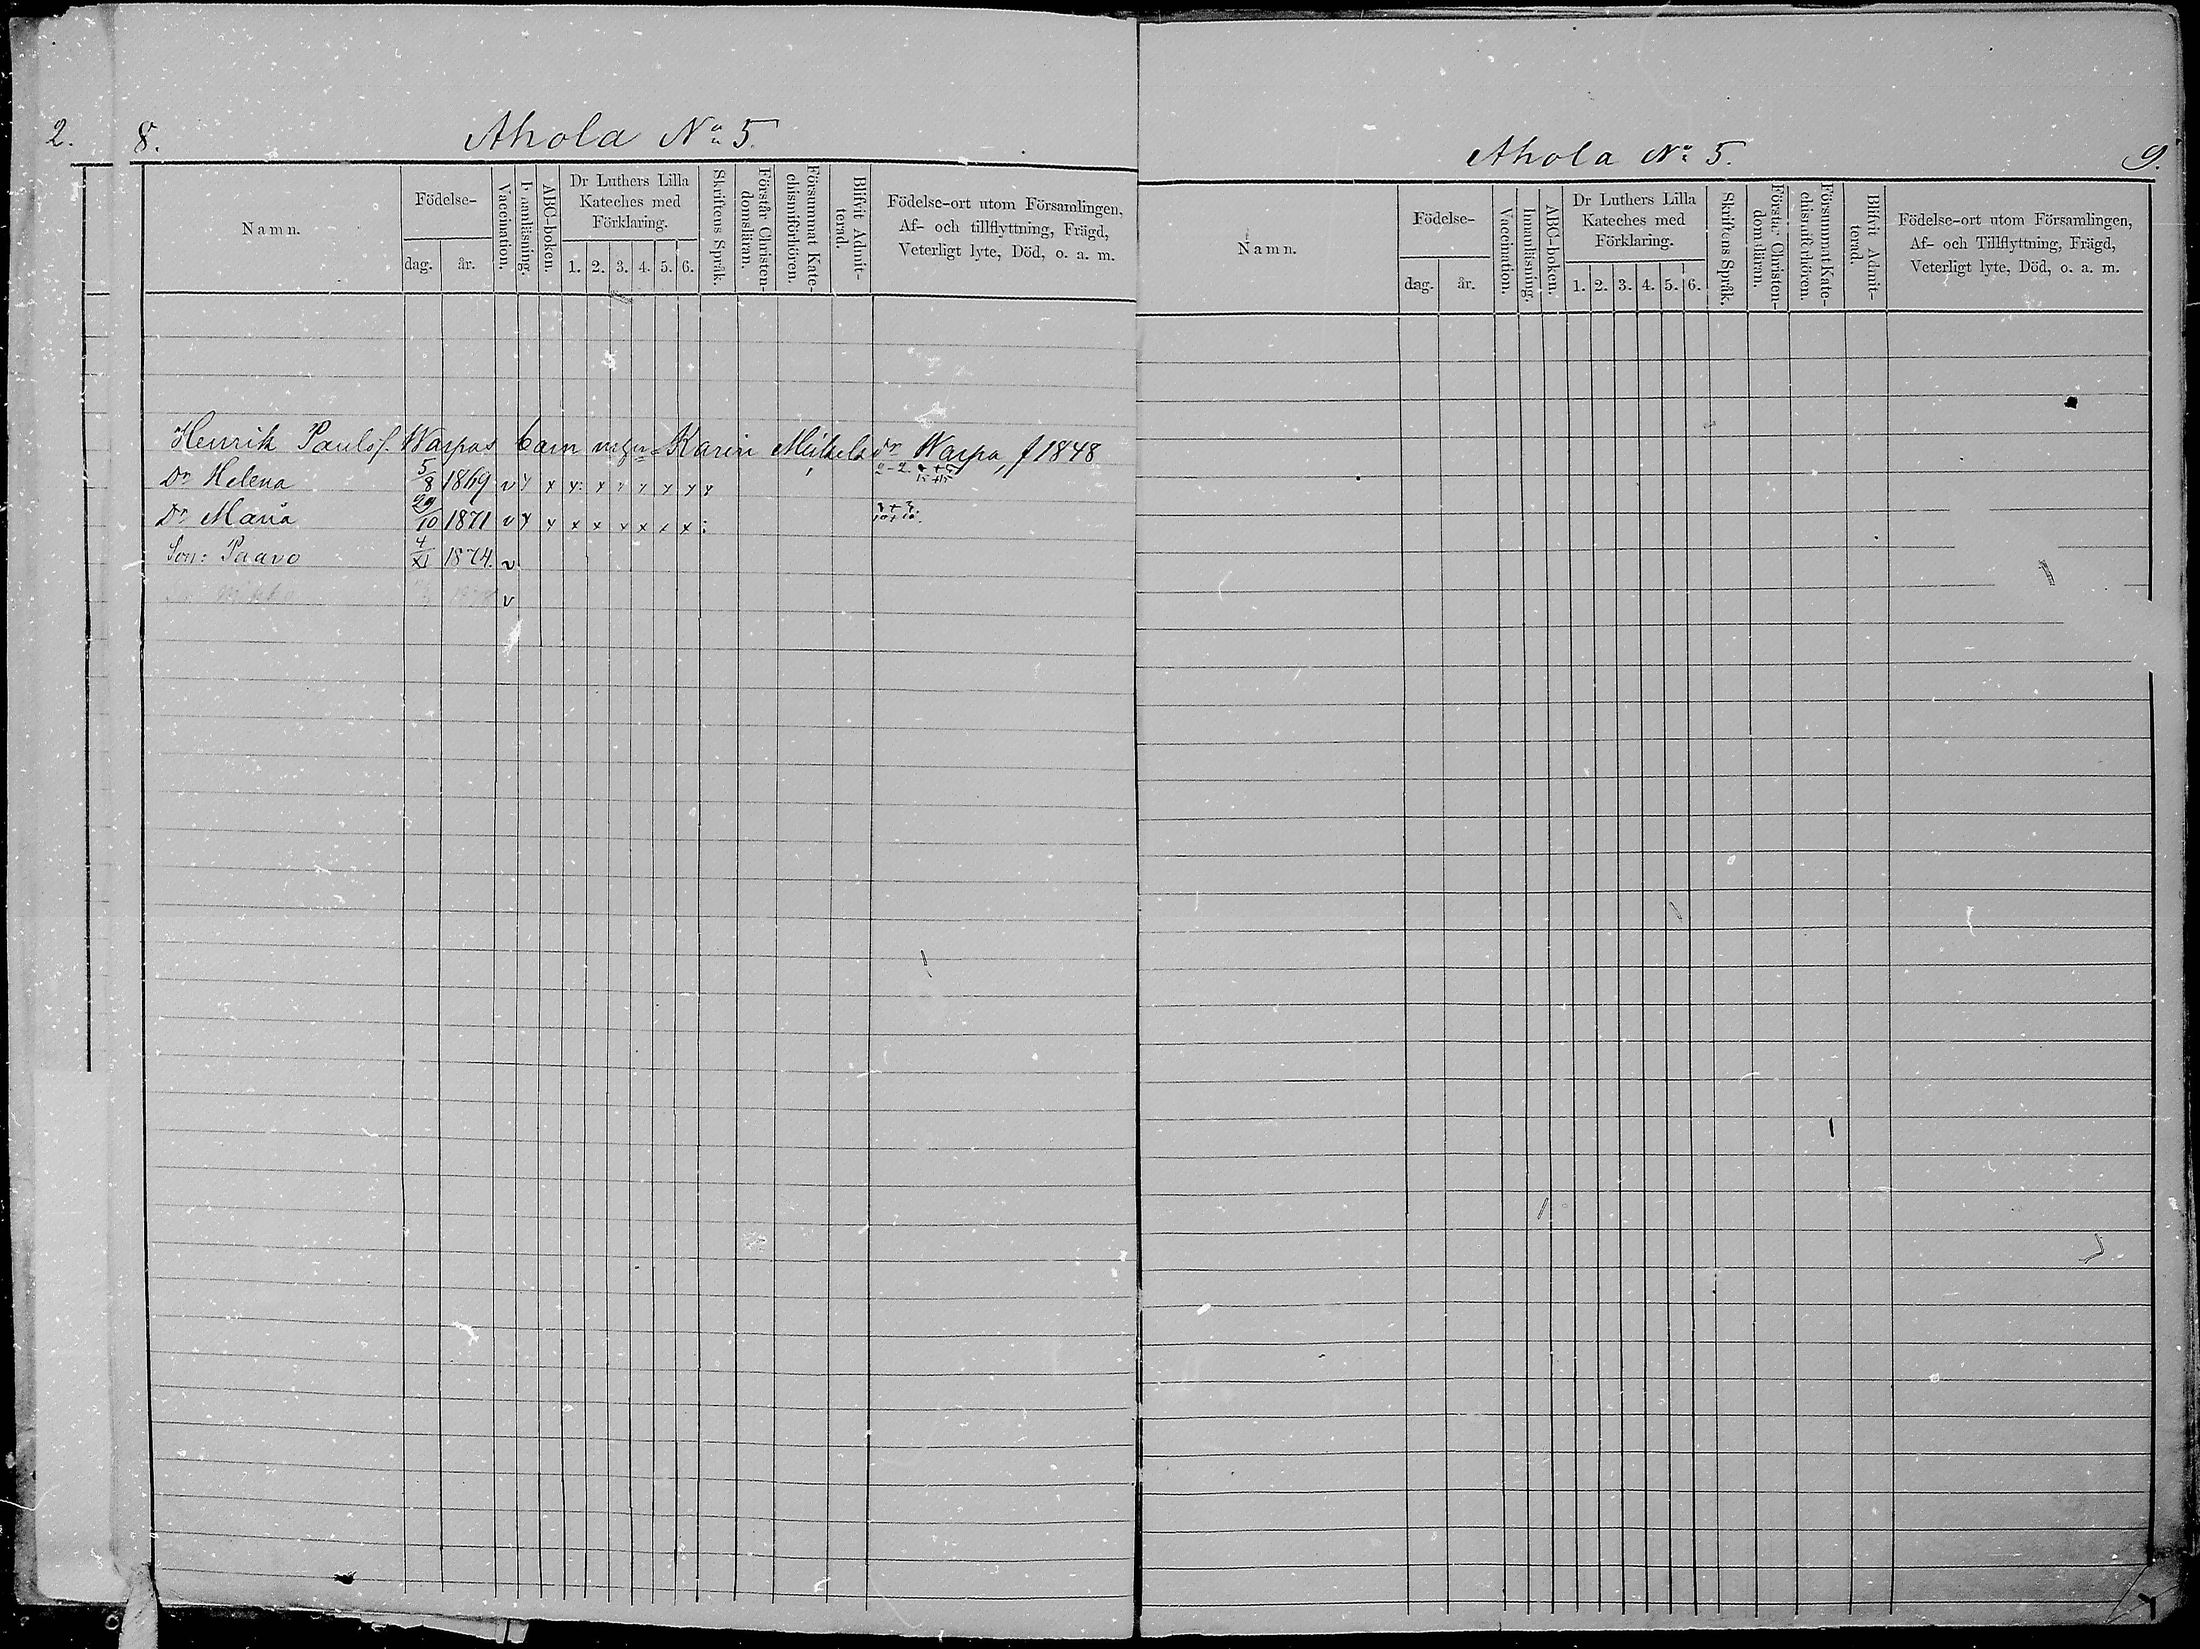 2.
8.
Ahola No 5.
Namn.
Födelse-
dag.
år.
Vaccination.
Innanläsning.
ABC-boken.
Dr Luthers Lilla
Kateches med
Förklaring.
1. 2. 3. 4. 5. 6.
Skriftens Språk.
Förstår Christen-
domsläran.
Försummat Kate-
chismiförhören.
Blifvit Admit-
terad.
Födelse-ort utom Församlingen,
Af- och tillflyttning, Frägd,
Veterligt lyte, Död, o. a. m.
Henrik Paulsf. Warpas barn Karin Mickelsdr Warpa, f 1848
Dr Helena 5/8 1869 v x x x x x x x x x
Dr Maria 29/10 1871 v x x x x x x x x
Son: Paavo 4/XI 1874. v
v
Ahola No 5.
9.
Namn.
Födelse-
dag.
år.
Vaccination.
Innanläsning.
ABC-boken.
Dr Luthers Lilla
Kateches med
Förklaring.
1. 2. 3. 4. 5. 6.
Skriftens Språk.
Förstår Christen-
domsläran.
Försummat Kate-
chismiförhören.
Blifvit Admit-
terad.
Födelse-ort utom Församlingen,
Af- och Tillflyttning, Frägd,
Veterligt lyte, Död, o. a. m.